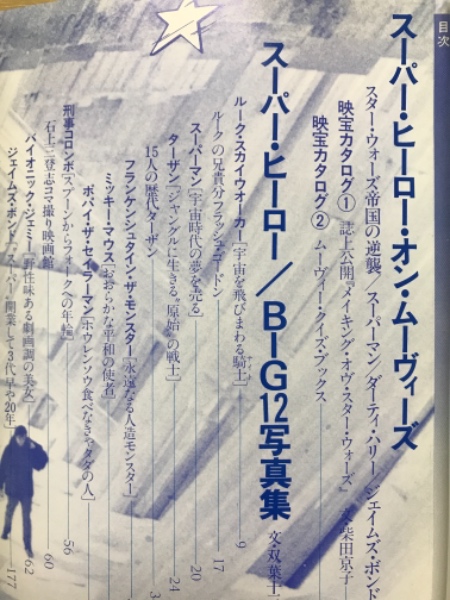 目次
スーパー・ヒーロー・オン・ムーヴィーズ
スター・ウォーズ帝国の逆襲/スーパーマン/ダーティ・ハリー ジェイムズ・ボンド
映宝カタログ① 誌上公開『メイキング・オヴ・スター・ウォーズ』 文・柴田京子
映宝カタログ② ムーヴィー・クイズ・ブックス
スーパー・ヒーロー/BIG12写真集 文・双葉十
ルーク・スカイウォーカー[宇宙を飛びまわる騎士] 9
ルークの兄貴分フラッシュ・ゴードン 17
スーパーマン[宇宙時代の夢を売る] 20
ターザン[ジャングルに生きる“原始”の戦士] 24
15人の歴代ターザン
フランケンシュタイン・ザ・モンスター[永遠なる人造モンスター]
ミッキー・マウス[おおらかな平和の使者]
ポパイ・ザ・セイラーマン[ホウレンソウ食べなきゃタダの人]
刑事コロンボ[スプーンからフォークへの年輪] 56
石上三登志コマ撮り映画館 60
バイオニック・ジェミー[野性味ある劇画調の美女] 62
ジェイムズ・ボンド[“スーパー”開業して3代早や20年] 177